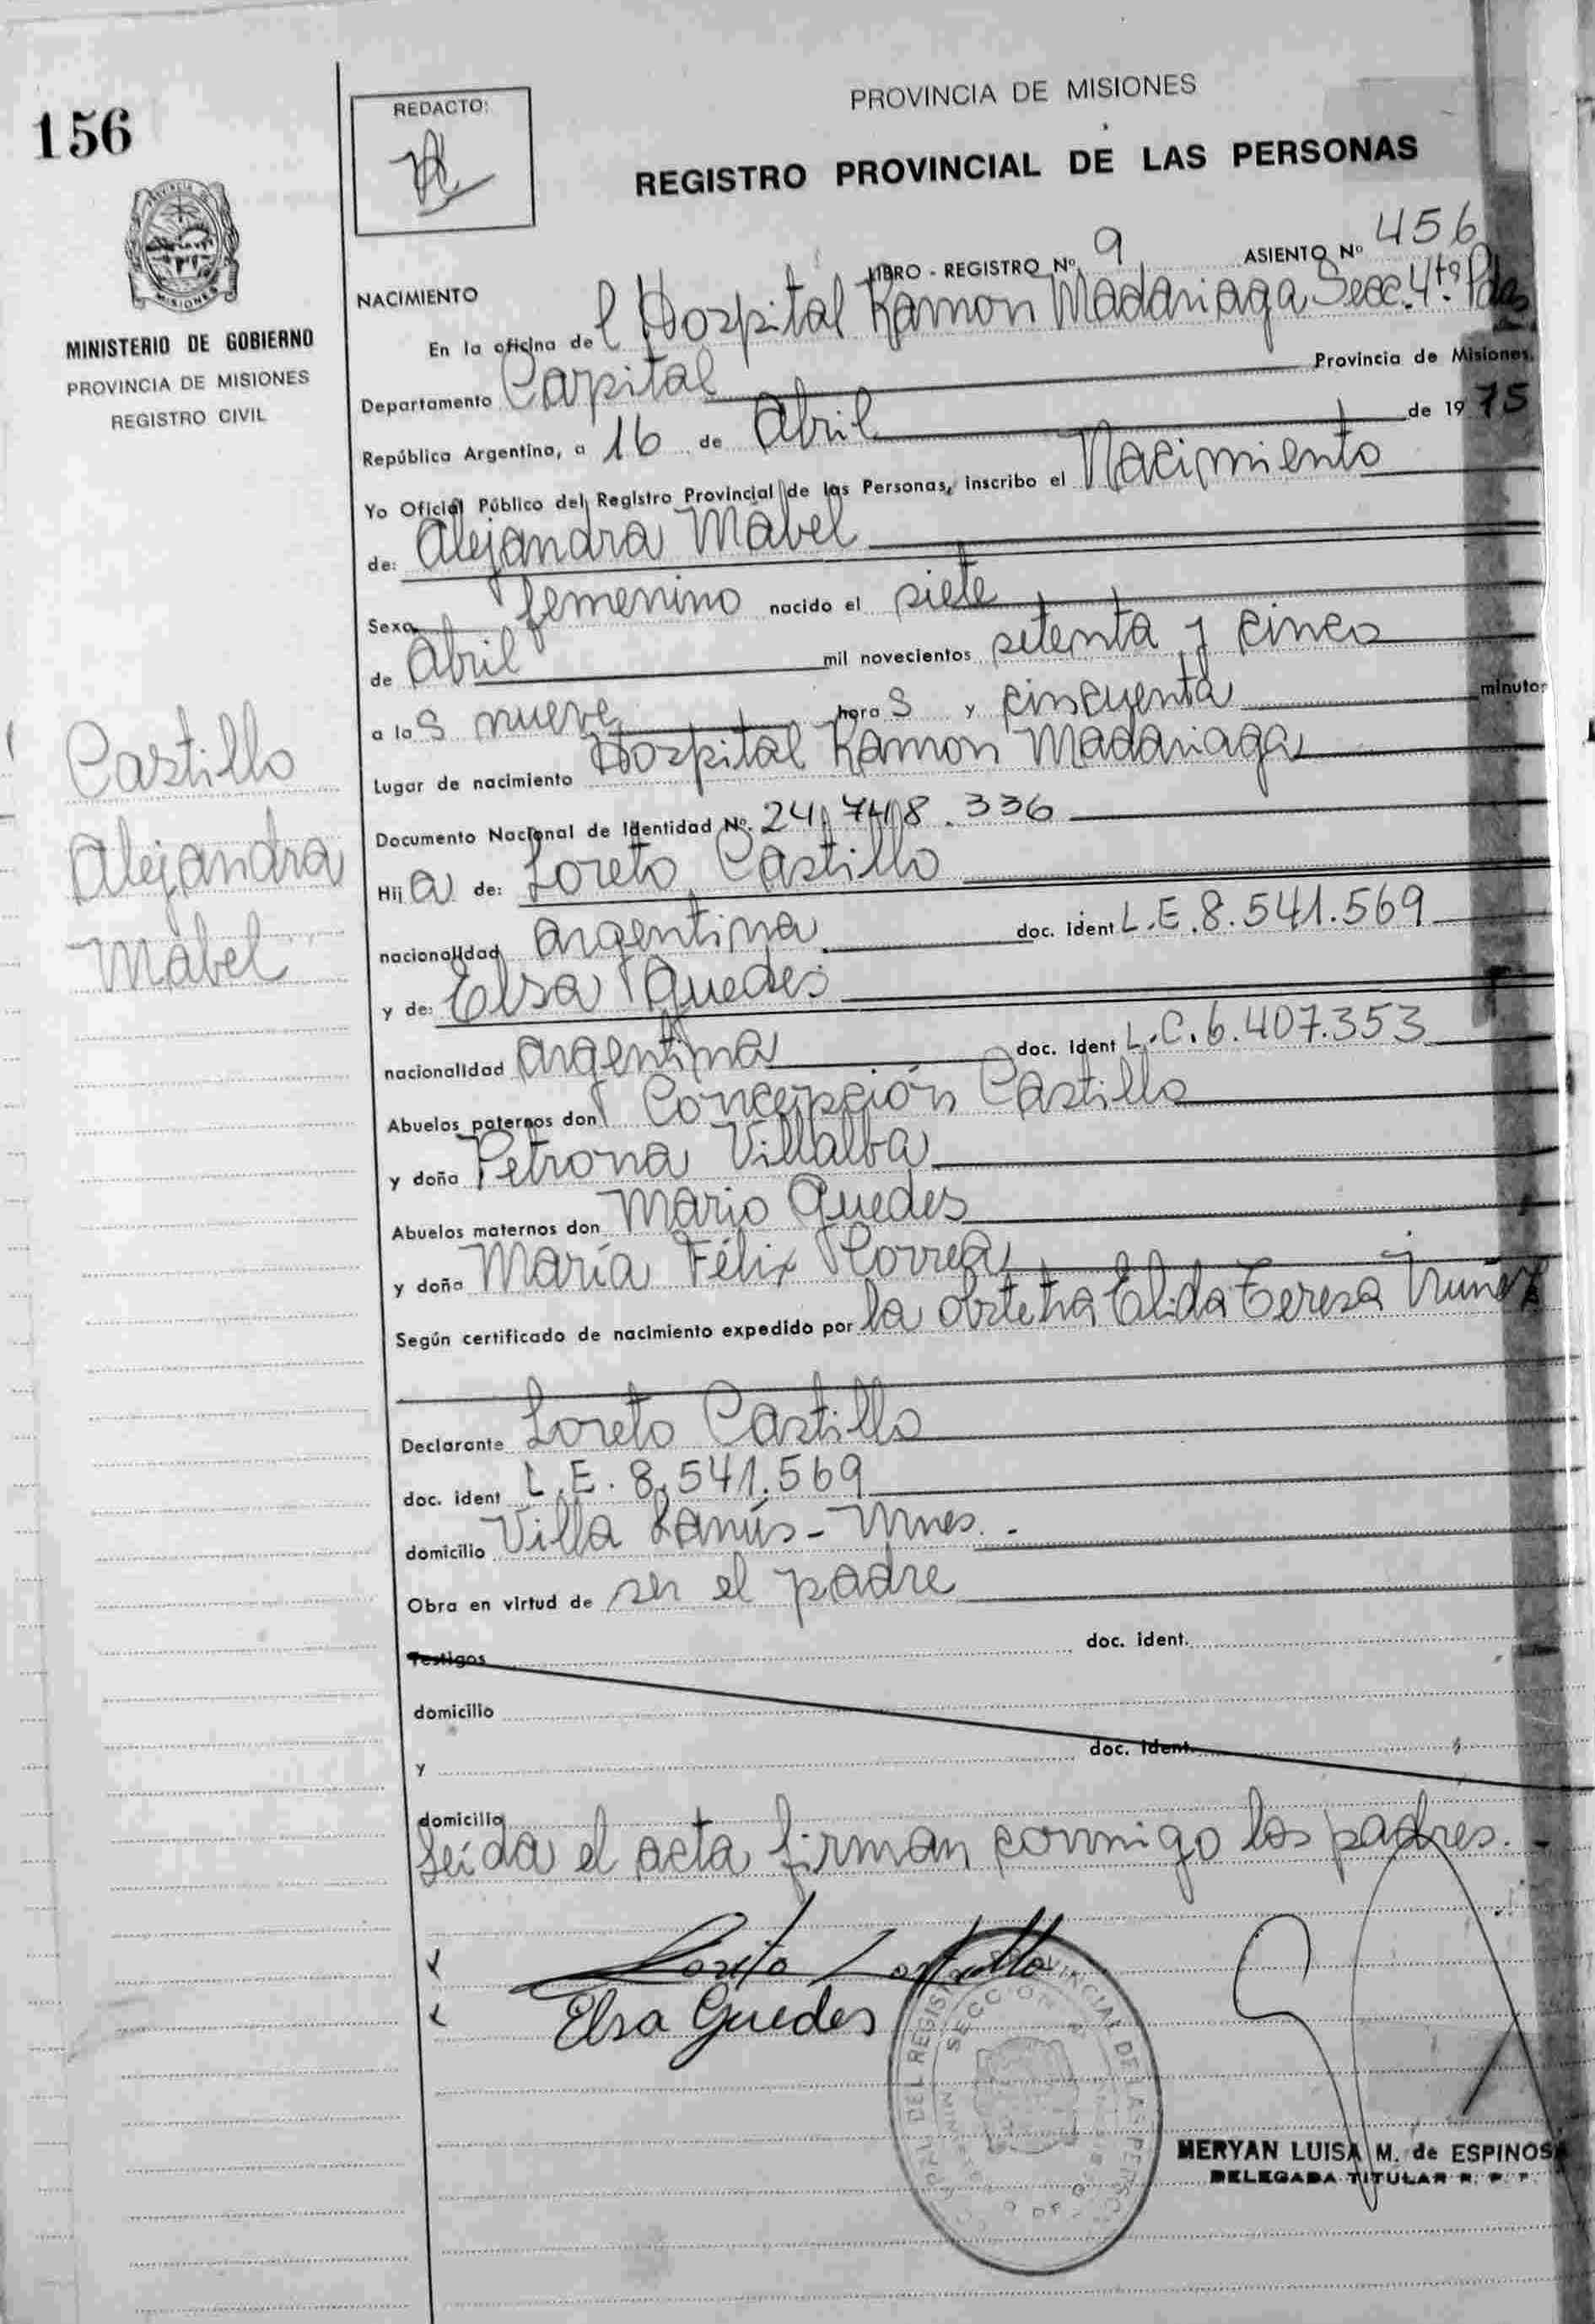 156
REDACTO:
PROVINCIA DE MISIONES
REGISTRO PROVINCIAL DE LAS PERSONAS
MISIONES
MINISTERIO DE GOBIERNO
PROVINCIA DE MISIONES
REGISTRO CIVIL
LIBRO - REGISTRO Nº 9 ASIENTO Nº 456
NACIMIENTO
En la oficina del Hospital Ramon Madariaga Secc. 4ta. Pdas
Departamento Capital Provincia de Misiones,
República Argentina, a 16 de Abril de 1975
Yo Oficial Público del Registro Provincial de las Personas, inscribo el Nacimiento
de: Alejandra Mabel
Sexo femenino nacido el siete
de Abril mil novecientos setenta y cinco
a las nueve horas y cincuenta minutos
Lugar de nacimiento Hospital Ramon Madariaga
Documento Nacional de Identidad Nº. 24.748.336
Hija de: Loreto Castillo
nacionalidad argentina doc. ident L.E.8.541.569
y de: Elsa Guedes
nacionalidad argentina doc. ident L.C.6.407.353
Abuelos paternos don Concepción Castillo
y doña Petrona Villalba
Abuelos maternos don Mario Guedes
y doña María Félix Correa
Según certificado de nacimiento expedido por la obstetra Elida Teresa Nuñez
Declarante Loreto Castillo
doc. ident L.E. 8.541.569
domicilio Villa Lanús - Mnes. -
Obra en virtud de ser el padre
Testigos doc. ident.
domicilio
y doc. ident.
domicilio
Leída el acta firman conmigo los padres. -
Castillo
Alejandra
Mabel
Loreto Castillo
Elsa Guedes
MERYAN LUISA M. de ESPINOSA
DELEGADA TITULAR R. P. P.